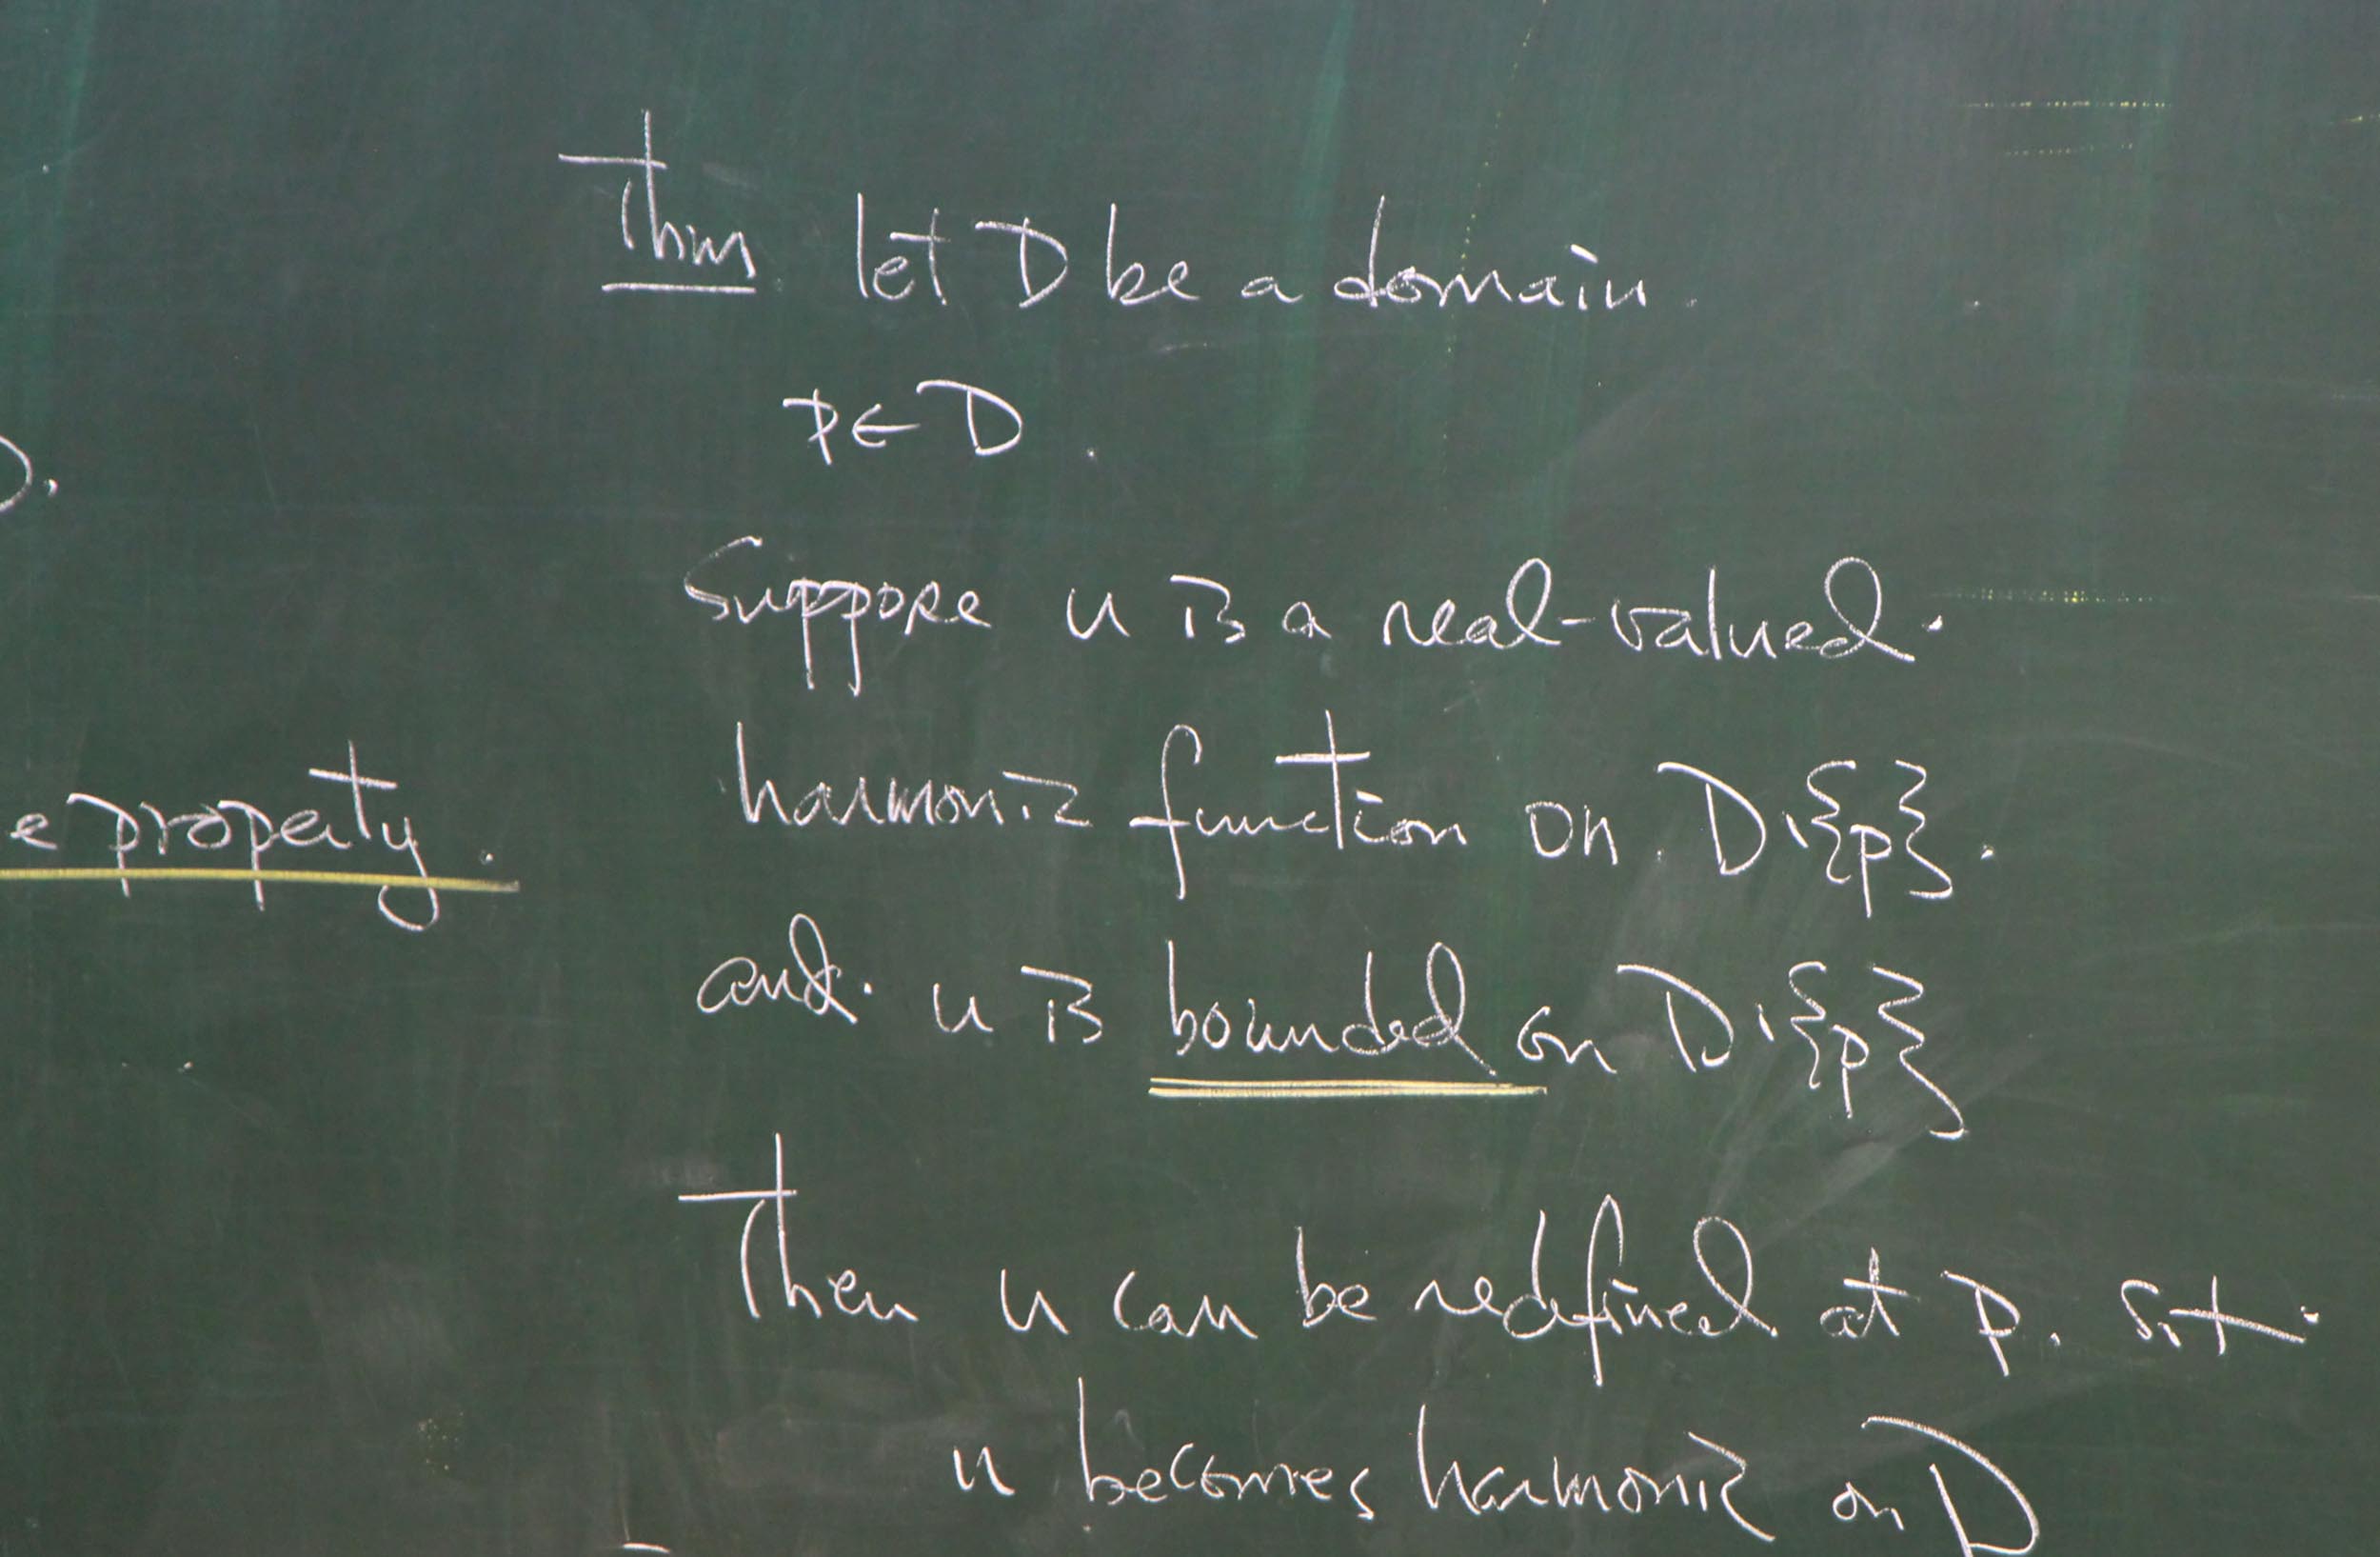 Thm. let D be a domain.
p∈D.
Suppose u is a real-valued.
harmonic function on D\{p}.
e property.
and. u is bounded on D\{p}
Then u can be redefined at p. s.t.
u becomes harmonic on D